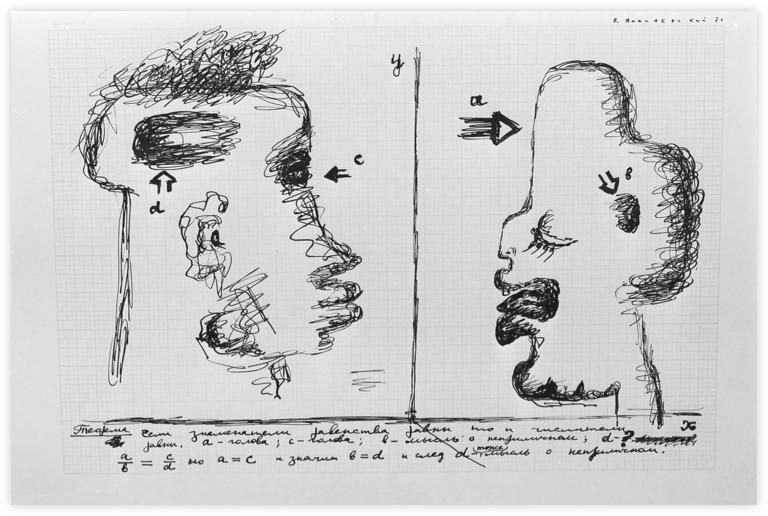 В. Янкилевский 71
y
a
c
в
d
x
Теорема Если знаменатели равенства равны то и числители
равны. a - голова; c - голова; в - мысль о неприличном; d - ?
a/в = c/d но a = c и значит в = d и след d тоже мысль о неприличном.